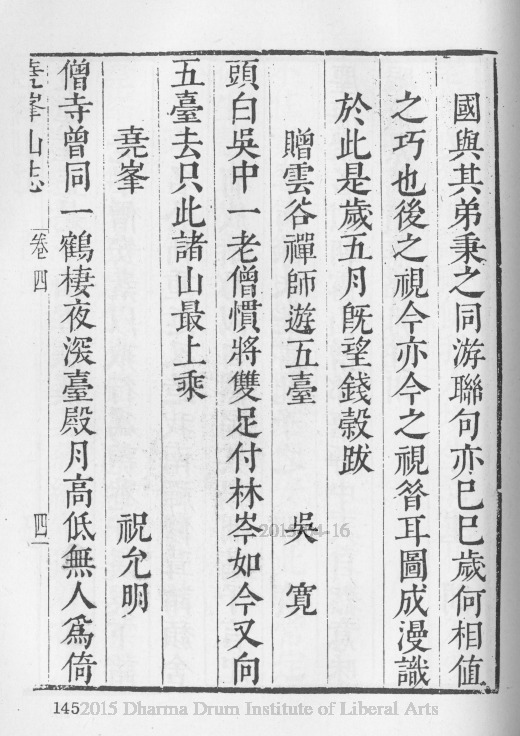 國與其弟秉之同游聯句亦己巳歲何相值
之巧也後之視今亦今之視昝耳圖成漫識
於此是歲五月既望錢榖跋
贈雲谷禪師遊五臺　吳寬
頭白吳中一老僧慣將雙足付林岑如今又向
五臺去只此諸山最上乘
堯峯　祝允明
僧寺曾同一鶴棲夜深臺殿月高低無人爲倚
堯峯山志　卷四　四
2015-04-16
145
2015 Dharma Drum Institute of Liberal Arts